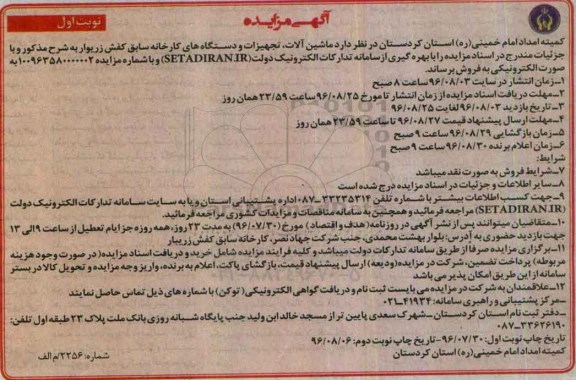 آگهی مزایده
نوبت اول
کمیته امداد امام خمینی(ره) استان کردستان در نظر دارد ماشین آلات، تجهیزات و دستگاه های کارخانه سابق کفش زریوار به شرح مذکور و با
جزئیات مندرج در اسناد مزایده را با بهره گیری از سامانه تدارکات الکترونیک دولت(SETADIRAN.IR) و با شماره مزایده ۱۰۰۹۶۳۵۸۰۰۰۰۰۲ به
صورت الکترونیکی به فروش برساند.
۱-زمان انتشار در سایت ۹۶/۰۸/۰۳ ساعت ۸ صبح
۲-مهلت دریافت اسناد مزایده از زمان انتشار تا مورخ ۹۶/۰۸/۲۵ ساعت ۲۳/۵۹ همان روز
۳-تاریخ بازدید ۹۶/۰۸/۰۳ لغایت ۹۶/۰۸/۲۵
۴-مهلت ارسال پیشنهاد قیمت ۹۶/۰۸/۲۷ تا ساعت ۲۳/۵۹ همان روز
۵-زمان بازگشایی ۹۶/۰۸/۲۹ ساعت ۹ صبح
۶-زمان اعلام برنده ۹۶/۰۸/۳۰ ساعت ۹ صبح
شرایط:
۷-شرایط فروش به صورت نقد میباشد
۸-سایر اطلاعات و جزئیات در اسناد مزایده درج شده است
۹-جهت کسب اطلاعات بیشتر با شماره تلفن ۳۳۲۳۵۳۱۴-۰۸۷ اداره پشتیبانی استان و یا به سایت سامانه تدارکات الکترونیک دولت
(SETADIRAN.IR) مراجعه فرمائید و همچنین به سامانه مناقصات و مزایدات کشوری مراجعه فرمائید.
۱۰-متقاضیان میتوانند پس از نشر آگهی در روزنامه(هدف و اقتصاد) مورخ (۹۶/۰۷/۳۰) به مدت ۲۳ روز، همه روزه جز ایام تعطیل از ساعت ۹ الی ۱۳
جهت بازدید حضوری به آدرس: بلوار بهشت محمدی، جنب شرکت جهاد نصر، کارخانه سابق کفش زریبار
۱۱-برگزاری مزایده صرفا از طریق سامانه تدارکات دولت میباشد و کلیه فرایند مزایده شامل خرید و دریافت اسناد مزایده(در صورت وجود هزینه
مربوطه) پرداخت تضمین، شرکت در مزایده(ودیعه) ارسال پیشنهاد قیمت، بازگشای پاکت، اعلام به برنده، واریز وجه مزایده و تحویل کالا در بستر
سامانه از این طریق امکان پذیر می باشد
۱۲-علاقمندان به شرکت در مزایده می بایست ثبت نام و دریافت گواهی الکترونیکی(توکن) با شماره های ذیل تماس حاصل نمایند
-مرکز پشتیبانی و راهبری سامانه: ۴۱۹۳۴-۰۲۱
-دفتر ثبت نام استان کردستان-شهرک سعدی پایین تر از مسجد خالد ابن ولید جنب پایگاه شبانه روزی بانک ملت پلاک ۲۳ طبقه اول تلفن:
۳۳۶۲۶۱۹۰-۰۸۷
تاریخ چاپ نوبت اول: ۹۶/۰۷/۳۰-تاریخ چاپ نوبت دوم: ۹۶/۰۸/۰۶
کمیته امداد امام خمینی(ره) استان کردستان
شماره: ۲۲۵۶/م الف